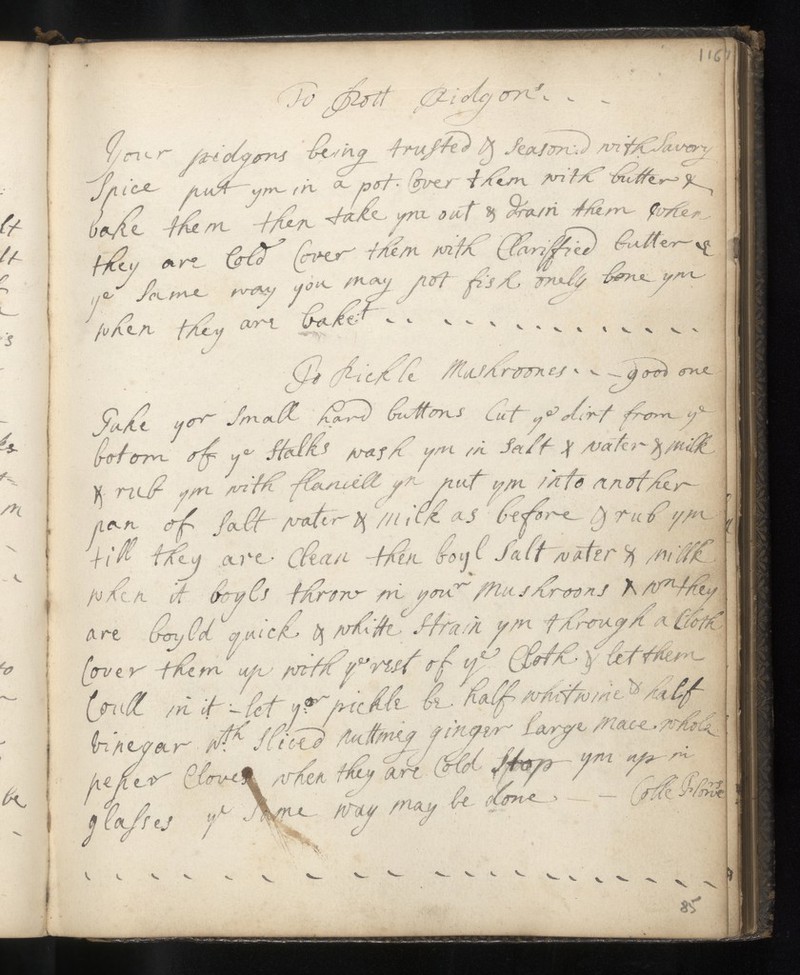 116
To Pott Pidgons
Your pidgons being trusted & seasoned with Savory
Spice put ym in a pot. Cover them with butter &
bake them then take ym out & drain them when
they are Cold Cover them with Clariffied butter &
ye Same way you may pot fish onely bone ym
when they are baket
To Pickle Mushroones - good one
Take yor Small hard buttons Cut ye dirt from ye
botom of ye Stalks wash ym in Salt & water & milk
& rub ym with flaniell yn put ym into another
pan of Salt water & milk as before & rub ym
till they are Clean then boyl Salt water & millk
when it boyls throw in your mushroons & wn they
are boyld quick & whitte Strain ym through a Cloth
Cover them up with ye rest of ye Cloth & let them
Coull in it - let yor pickle be half whitwine & half
vinegar wth Sliced nuttmeg ginger Large mace whole
peper Cloves when they are Cold Stop ym up in
glasses ye Same way may be done - - Colle
85